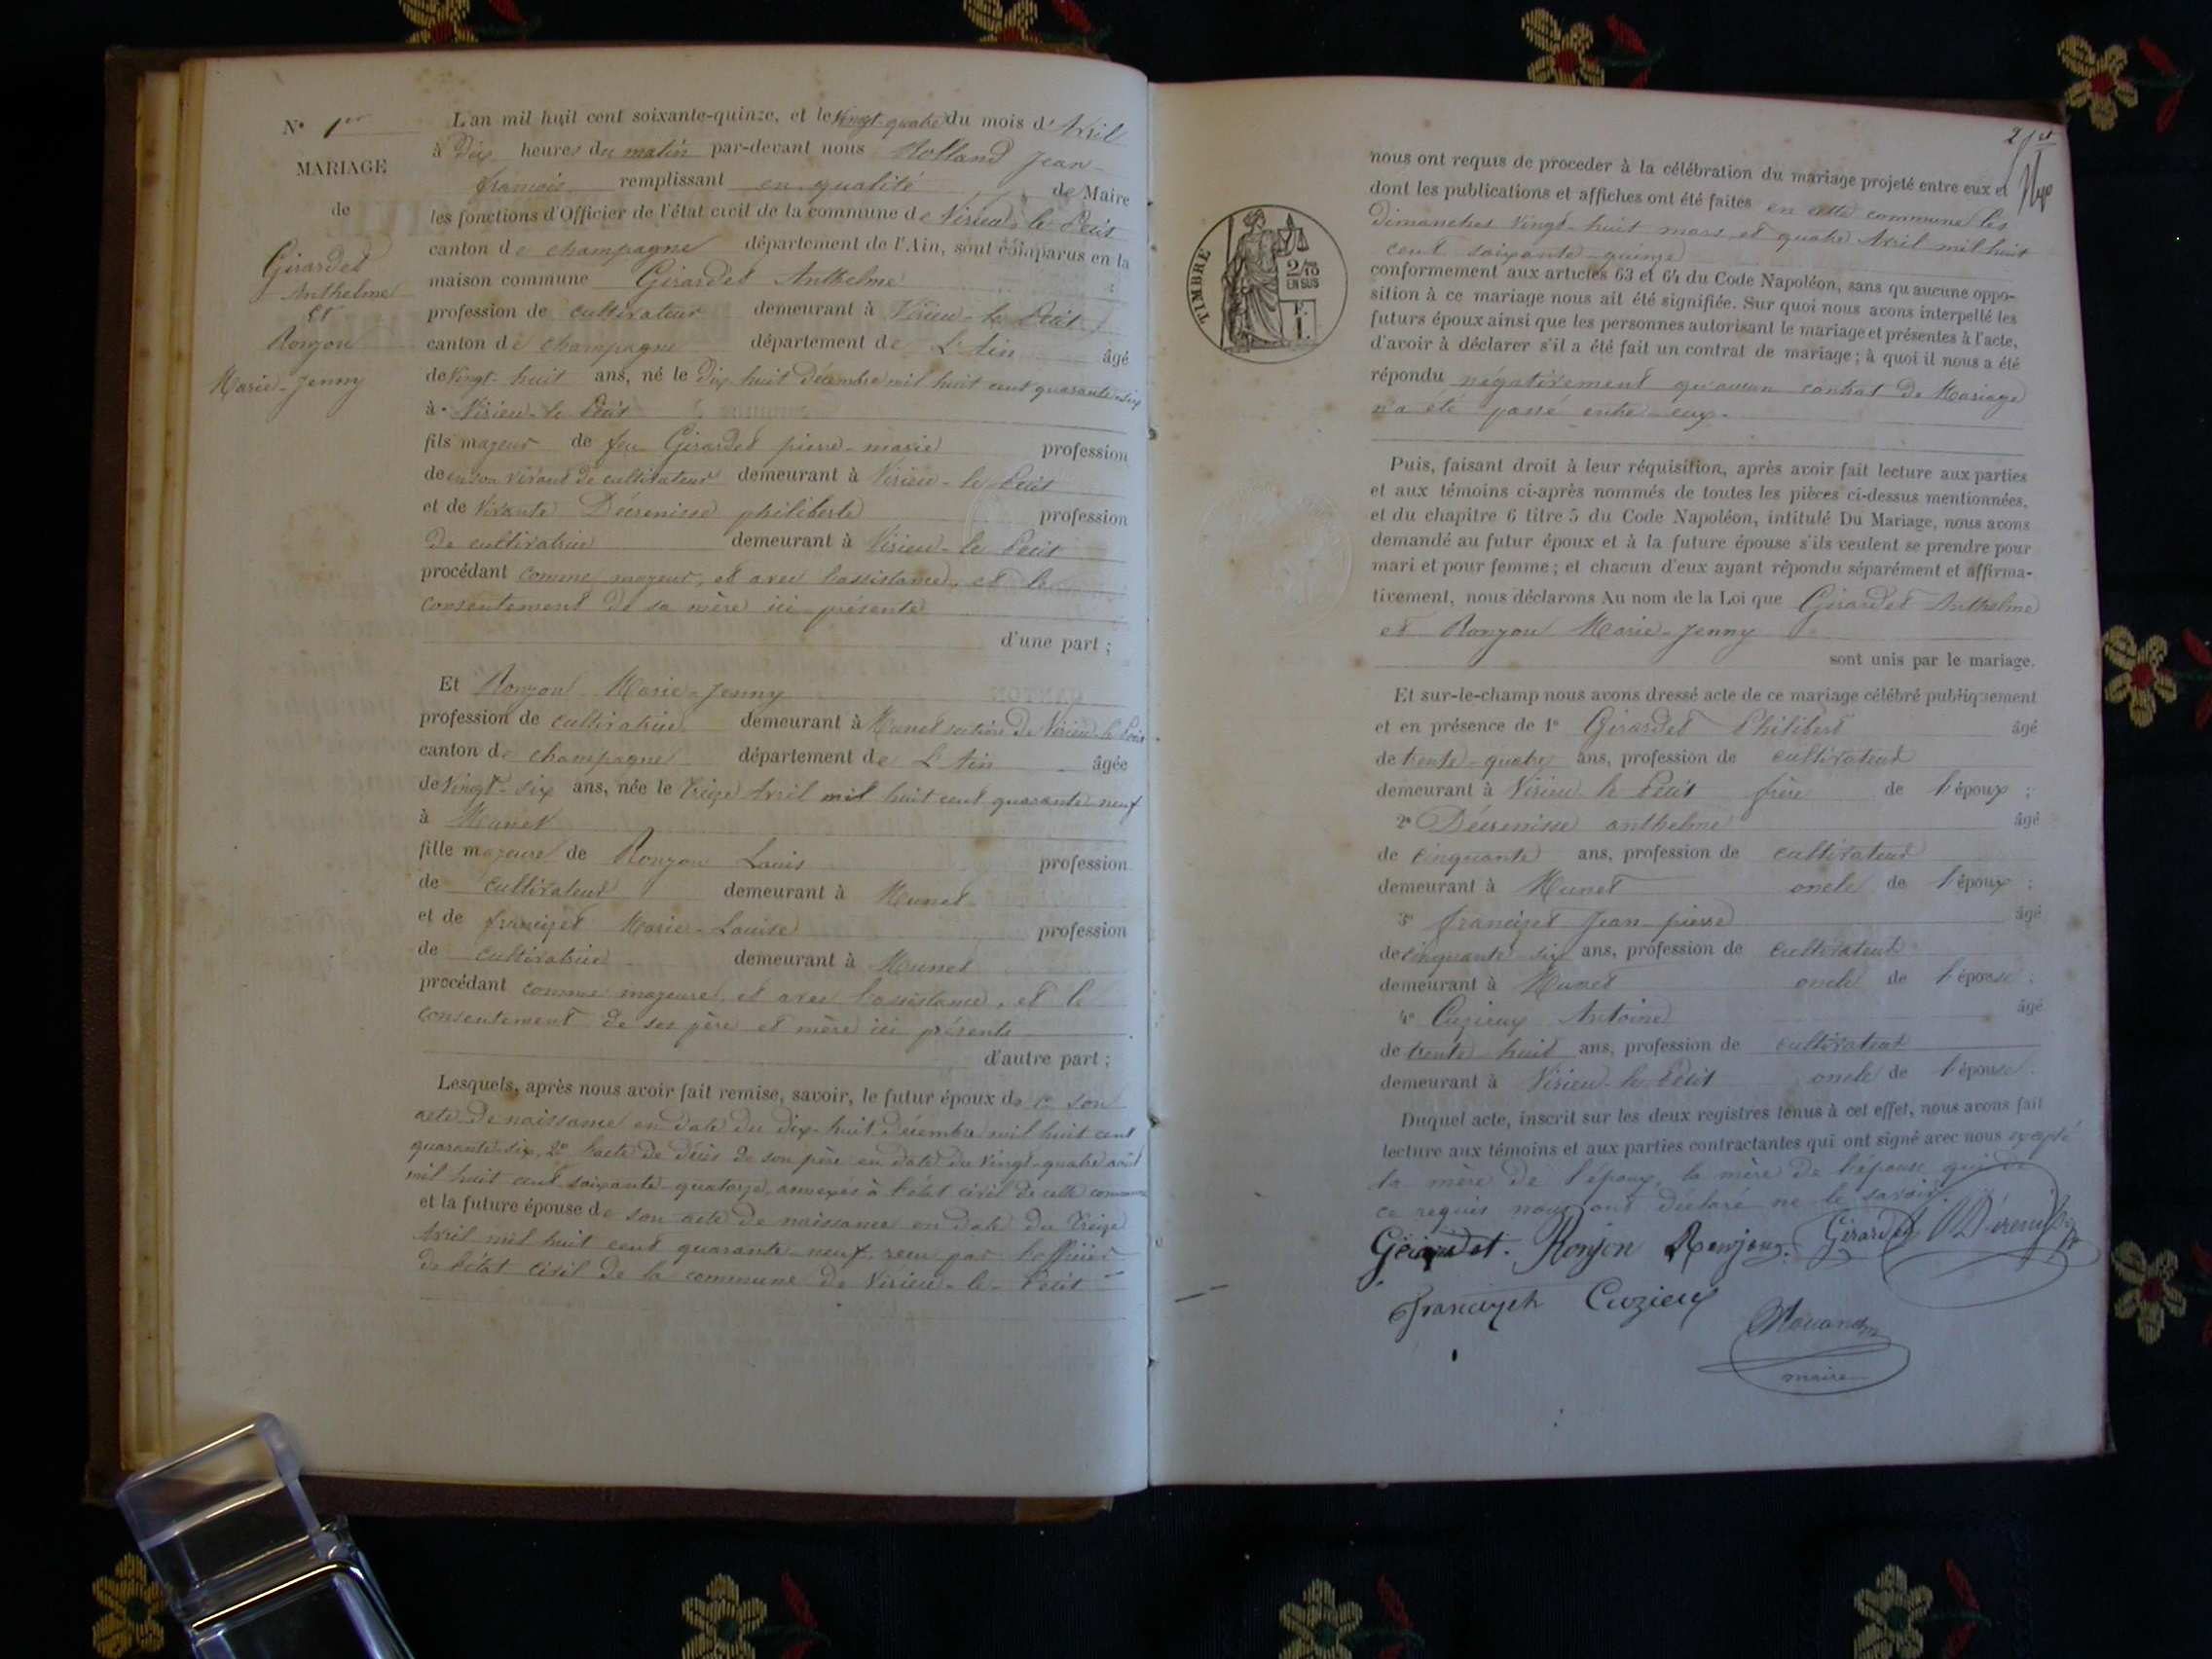 N° 1er
MARIAGE
de
Girardet
Anthelme
et
Ronjon
Marie-Jenny
L'an mil huit cent soixante-quinze, et le vingt-quatre du mois d'Avril
à dix heures du matin par-devant nous Jean-
françois remplissant en qualité de Maire
les fonctions d'Officier de l'état civil de la commune de Virieu-le-Petit
canton de champagne département de l'Ain, sont comparus en la
maison commune Girardet Anthelme
profession de cultivateur demeurant à Virieu-le-Petit
canton de champagne département de L'Ain âgé
de vingt-huit ans, né le dix huit décembre mil huit cent quarante-six
à Virieu-le-Petit
fils majeur de feu Girardet pierre-marie profession
de en son vivant de cultivateur demeurant à Virieu-le-Petit
et de vivante Décrenisse philiberte profession
de cultivatrice demeurant à Virieu-le-Petit
procédant comme majeur, et avec l'assistance, et le
consentement de sa mère ici présente
d'une part ;
Et Ronjon Marie-Jenny
profession de cultivatrice demeurant à Munet section de Virieu-le-Petit
canton de champagne département de L'Ain âgée
de vingt-six ans, née le treize Avril mil huit cent quarante-neuf
à Munet
fille majeure de Ronjon Louis profession
de cultivateur demeurant à Munet
et de francizet Marie-Louise profession
de cultivatrice demeurant à Munet
procédant comme majeure, et avec l'assistance, et le
consentement de ses père et mère ici présents
d'autre part ;
Lesquels, après nous avoir fait remise, savoir, le futur époux de son
acte de naissance en date du dix-huit décembre mil huit cent
quarante-six, 2° l'acte de décès de son père en date du vingt-quatre août
mil huit cent soixante-quatorze, annexés à l'état civil de cette commune
et la future épouse de son acte de naissance en date du treize
Avril mil huit cent quarante-neuf, reçu par l'officier
de l'état civil de la commune de Virieu-le-Petit
TIMBRE
2/10
EN SUS
F.
1.
nous ont requis de proceder à la célébration du mariage projeté entre eux et
dont les publications et affiches ont été faites en cette commune les
dimanches vingt-huit mars et quatre Avril mil huit
cent soixante-quinze
conformement aux articles 63 et 64 du Code Napoléon, sans qu'aucune oppo-
sition à ce mariage nous ait été signifiée. Sur quoi nous avons interpellé les
futurs époux ainsi que les personnes autorisant le mariage et présentes à l'acte,
d'avoir à déclarer s'il a été fait un contrat de mariage ; à quoi il nous a été
répondu négativement qu'aucun contrat de Mariage
n'a été passé entre eux.
Puis, faisant droit à leur réquisition, après avoir fait lecture aux parties
et aux témoins ci-après nommés de toutes les pièces ci-dessus mentionnées,
et du chapitre 6 titre 5 du Code Napoléon, intitulé Du Mariage, nous avons
demandé au futur époux et à la future épouse s'ils veulent se prendre pour
mari et pour femme ; et chacun d'eux ayant répondu séparément et affirma-
tivement, nous déclarons Au nom de la Loi que Girardet Anthelme
et Ronjon Marie-Jenny
sont unis par le mariage.
Et sur-le-champ nous avons dressé acte de ce mariage célébré publiquement
et en présence de 1° Girardet Philibert âgé
de trente-quatre ans, profession de cultivateur
demeurant à Virieu le Petit frère de l'époux ;
2° Décrenisse anthelme âgé
de cinquante ans, profession de cultivateur
demeurant à Munet oncle de l'époux ;
3° francizet Jean-pierre âgé
de cinquante-six ans, profession de cultivateur
demeurant à Munet oncle de l'épouse ;
4° Cuzieux Antoine âgé
de trente-huit ans, profession de cultivateur
demeurant à Virieu-le-Petit oncle de l'épouse.
Duquel acte, inscrit sur les deux registres tenus à cet effet, nous avons fait
lecture aux témoins et aux parties contractantes qui ont signé avec nous excepté
la mère de l'époux, la mère de l'épouse qui de
ce requis nous ont déclaré ne le savoir.
Girardet. Ronjon Ronjon. Girardet
Cuzieux
maire